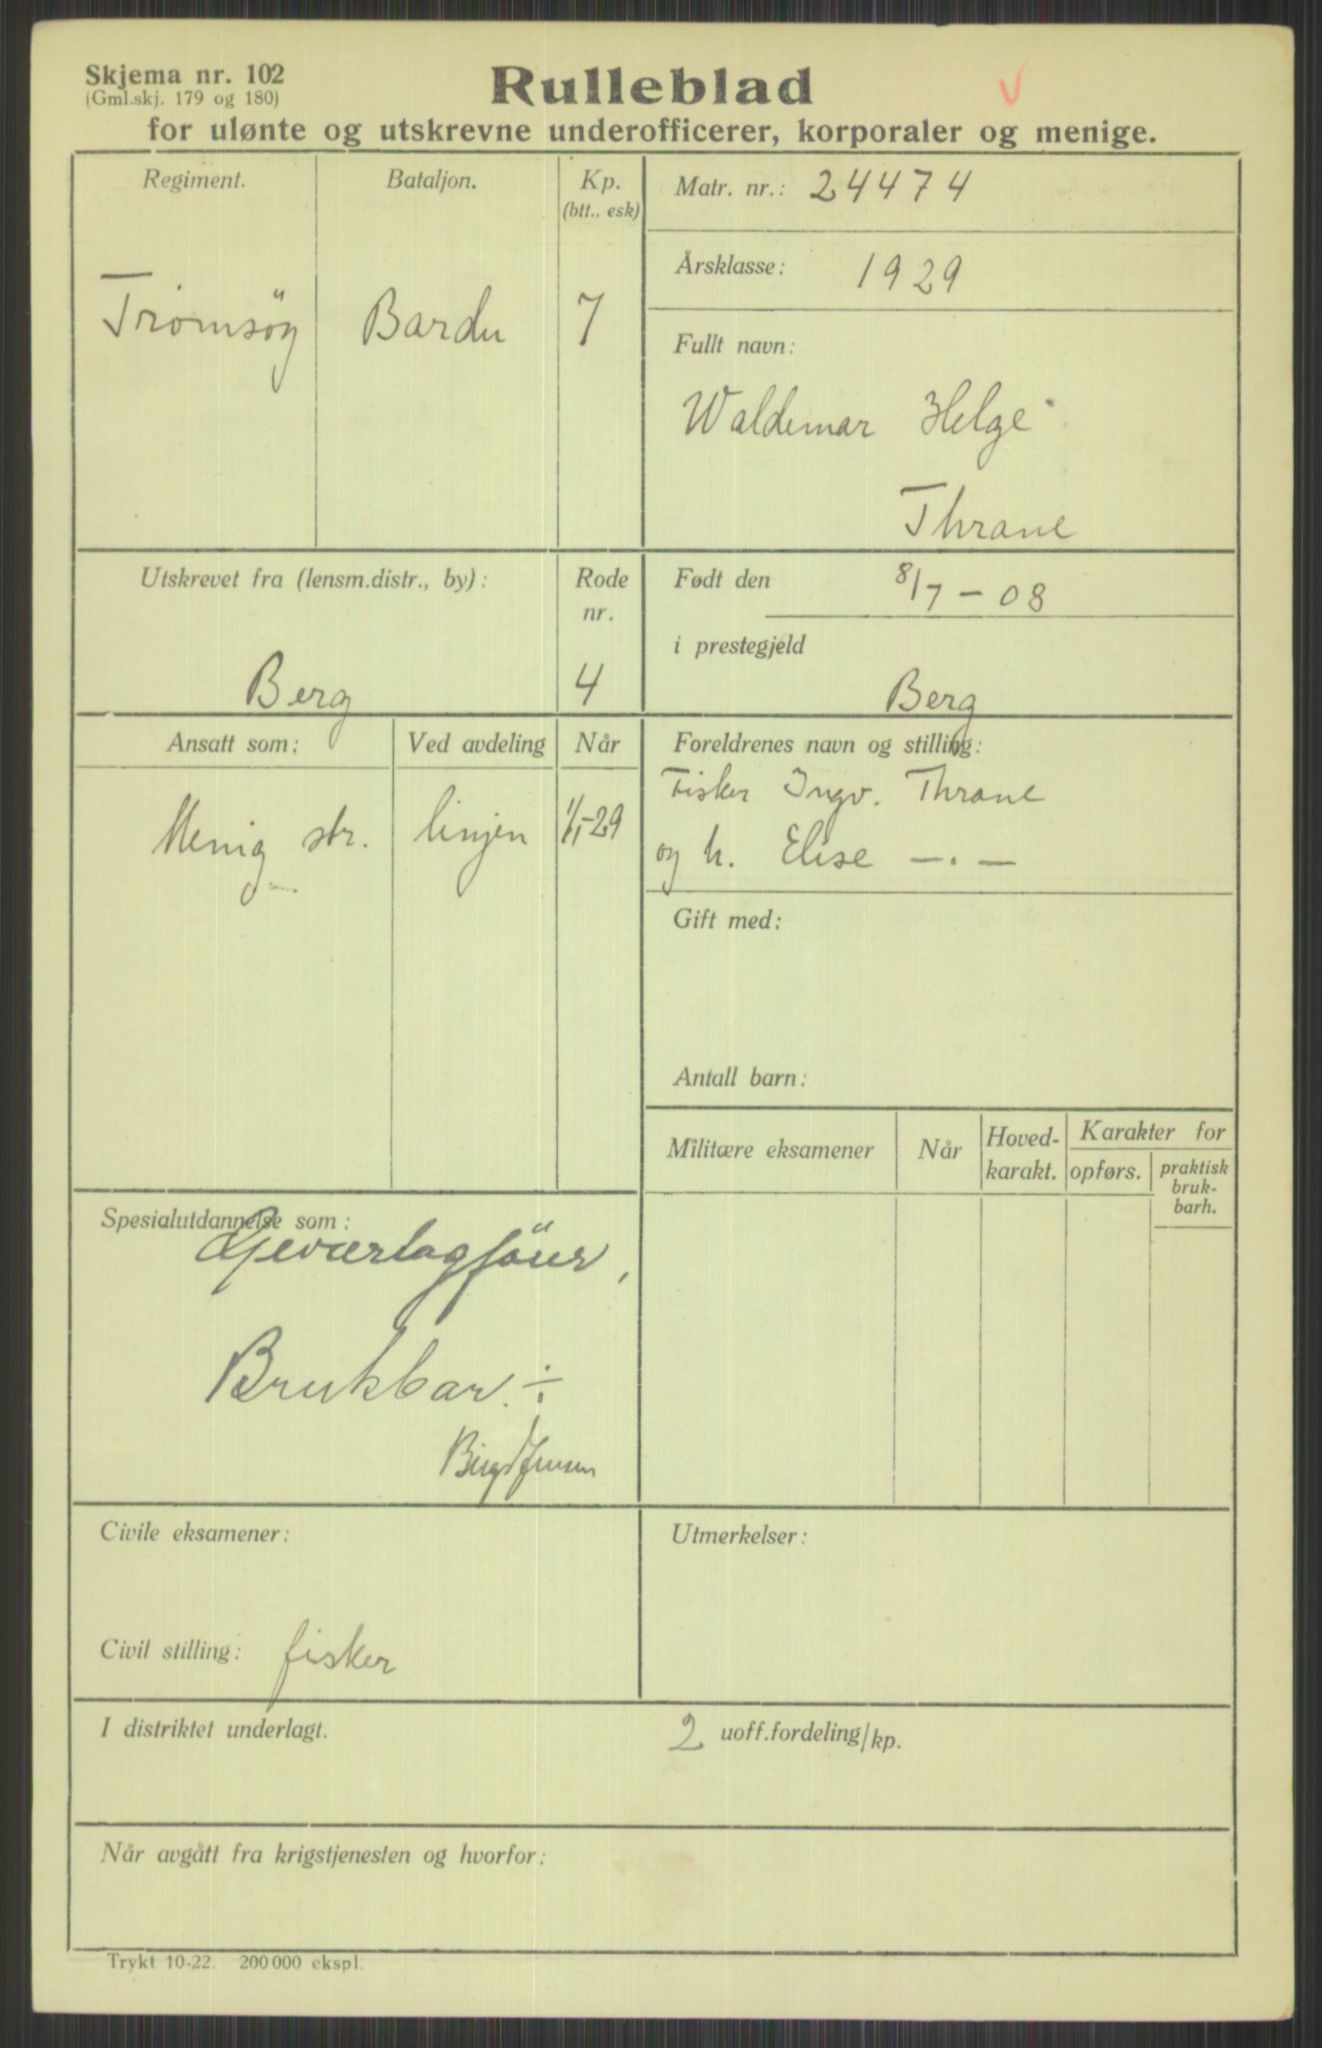 Skjema nr. 102
(Gml.skj. 179 og 180)
Rulleblad
for ulønte og utskrevne underofficerer, korporaler og menige.
Regiment.
Tromsöy
Bataljon.
Bardu
Kp.
(btt., esk)
7
Matr. nr.: 24474
Årsklasse: 1929
Fullt navn:
Waldemar Helge
Thrane
Utskrevet fra (lensm.distr., by):
Berg
Rode
nr.
4
Født den 8/7 - 08
i prestegjeld
Berg
Ansatt som:
Menig str.
Ved avdeling
linjen
Når
1/1-29
Foreldrenes navn og stilling:
Fisker Ingv. Thrane
og h. Elise —.—
Gift med:
Antall barn:
Militære eksamener
Når
Hoved-
karakt.
Karakter for
opførs.
praktisk
bruk-
barh.
Spesialutdannelse som:
Geværlagförer,
Brukbar. ÷
Civile eksamener:
Civil stilling: fisker
Utmerkelser:
I distriktet underlagt.
2 uoff.fordeling/kp.
Når avgått fra krigstjenesten og hvorfor:
Trykt 10-22. 200 000 ekspl.